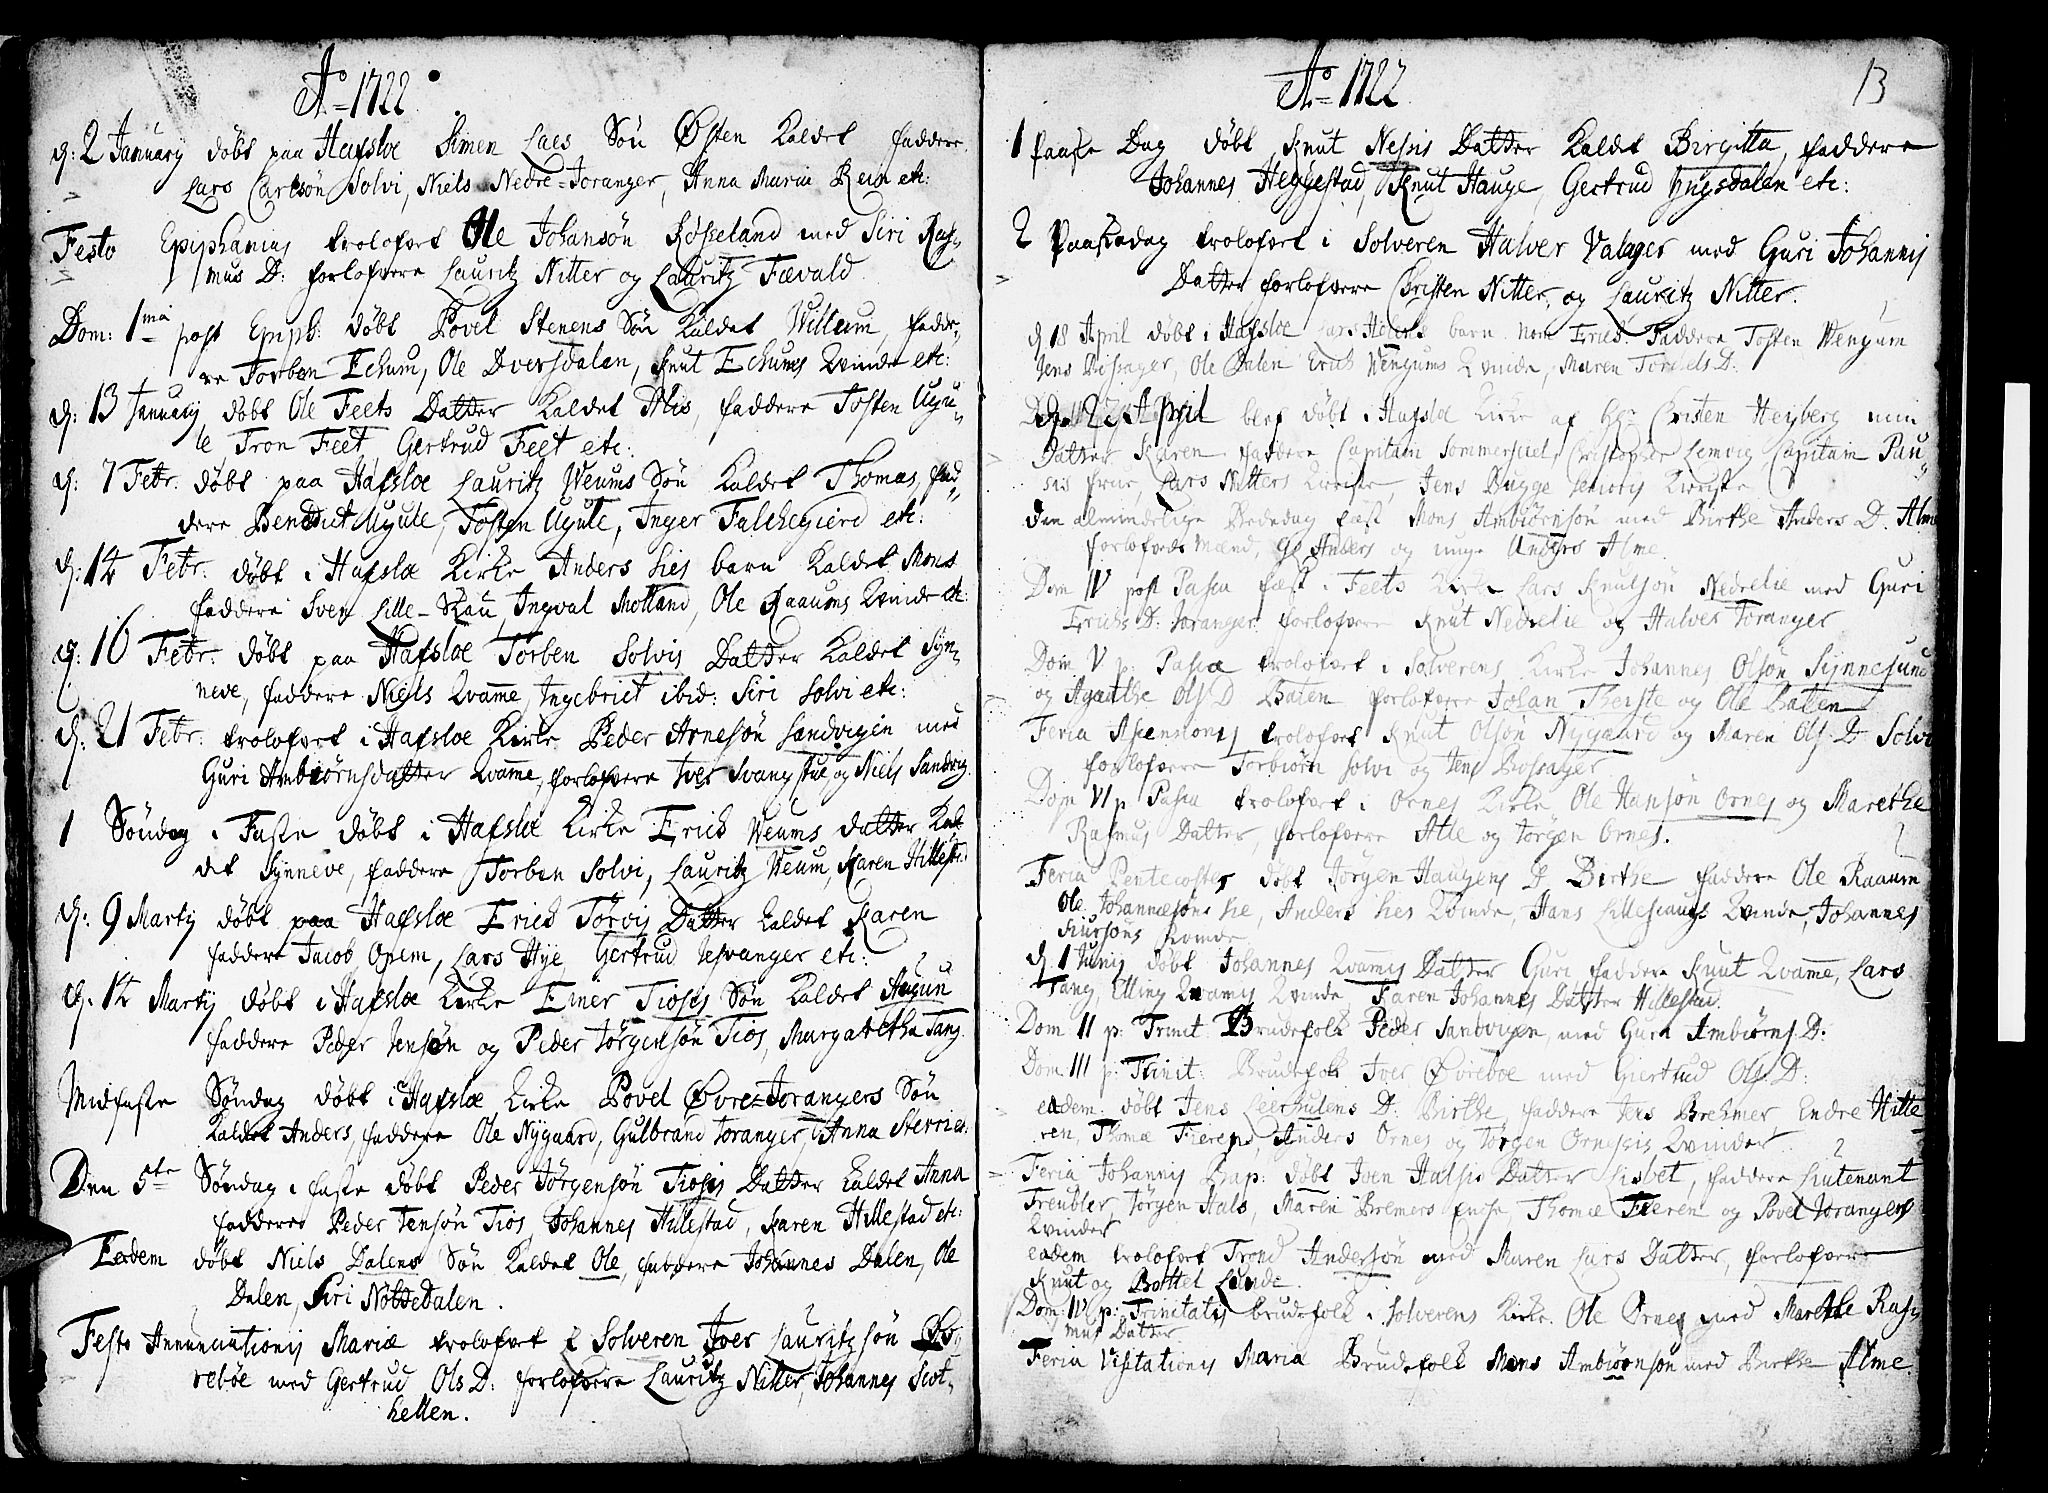 Ao= 1722
d: 2 January døbt paa Hafsloe Simen Laes Søn Østen kaldet faddere
Lars Carlsøn Solvi, Niels Nedre=Joranger, Anna Maria Rein etc:
Festo Epiphanias troloفvet Ole Johansøn Røsseland med Siri Ras,,
mus D: forlofvere Lauritz Nitter og Lauritz Fævald
Dom: 1ma post Epiph: døbt Povel Stenens Søn kaldet Willum, fadde,,
re Torben Echum, Ole Dversdalen, Knut Echums Kvinde etc:
d: 13 January døbt Ole Feets Datter kaldet Alis, faddere Tosten Ugu,,
le, Tron Feet, Gertrud Feet etc:
d: 7 Febr. døbt paa Hafsloe Lauritz Weums Søn kaldet Thomas, fad,,
dere Bendict Ugule, Tosten Ugule, Inger Falchegierd etc:
d: 14 Febr: døbt i Hafsloe Kirke Anders Lies barn kaldet Mons
faddere Sven Lille-Skau, Ingval Molland, Ole Raaums Kvinde etc:
d: 16 Febr: døbt paa Hafsloe Torben Solvis Datter kaldet Syn,,
neve, faddere Niels Kvamme, Ingebrict ibid: Siri Solvi etc:
d: 21 Febr: trolofvet i Hafsloe Kirke Peder Arnesøn Sandvigen med
Guri Ambiørnsdatter Kvamme, forlofvere Iver Svangstue og Niels Sandvig.
1 Søndag i Faste døbt i Hafsloe Kirke Erick Weums datter kal
det Synneve, faddere Torben Solvi, Lauritz Weum, Karen Hillestad
d: 9 Martij døbt paa Hafsloe Erick Tørvis Datter kaldet Karen
faddere Jacob Opem, Lars Hye, Gertrud Jesvanger etc:
d. 14 Martij døbt i Hafsloe Kirke Einer Tioses Søn kaldet Augun
faddere Peder Jensøn og Peder Jørgensøn Tios, Margaretha Tang.
Midfaste Søndag døbt i Hafsloe Kirke Povel Øvre=Jorangers Søn
kaldet Anders, faddere Ole Nygaard, Gulbrand Joranger, Anna
Den 5te Søndag i faste døbt Peder Jørgensøn Tioses Datter kaldet Anna
faddere Peder Jensøn Tios, Johannes Hillestad, Karen Hillestad etc:
Eodem døbt Niels Dalens Søn kaldet Ole, faddere Johannes Dalen, Ole
Dalen, Siri Nottedalen.
Festo Annunciationis Mariæ trolofvet i Solveren Iver Lauritzsøn Øv,,
rebøe med Gertrud Ols D: forlofvere Lauritz Nitter, Johannes Scot,,
hellen.
Ao= 1722 13
1 Paaske Dag døbt Knut Nesses Datter kaldet Birgitta, faddere
Johannes Heggestad, Knut Hauge, Gertrud Yngsdalen etc:
2 Paaskedag trolofvet i Solveren Halver Valager med Guri Johannis
Datter forlofvere Christen Nitter, og Lauritz Nitter.
d 18 April døbt i Hafsloe Lars barn Erick. Faddere Tosten Wengum
Jens Bossager, Ole Dalen Erick Wengums Kvinde, Maren D.
d. 27 April blef døbt i Hafsloe Kirke af Hr Christen Heyberg min
Datter Karen. faddere Capitain Sommerfuel, Christopher Lemvig Capitain Pau,,
Frue, Lars Nitters Kieriste, Jens Bugge
den almindelige Bededag fæst Mons Ambiørnsøn med Birthe Anders D. Alme
forlofveds Mænd, Gl Anders og unge Anders Alme.
Dom IV post Pascha fæst i Feets Kirke Lars Knutsøn Nedrelie med Guri
Erichs D: Joranger forlofvere Knut Nedrelie og Halver Joranger
Dom V p: Pascha trolofvet i Solverens Kirke Johannes Olsøn Synnesund
og Agathe Ols D Baten forlofvere Johan Therste og Ole Baten
Feria Ascensionis trolofvet Knut Olsøn Nygaard og Maren Ols D Solvi
forlofvere Torbiørn Solvi og Jens Bossager
Dom VI p Pascha trolofvet i Ornes Kirke Ole Hansøn Ornes og Marethe
Rasmus Datter, forlofvere Atle og Jørgen Ornes.
Feria Pentecostes døbt Jørgen Haugens D Birthe faddere Ole Raaum
Ole Johannesøns Lie, Anders Lies Kvinde, Hans Kvinde, Johannes
Kvinde
d 1 Junij døbt Johannes Kvames Datter Guri faddere Knut Kvamme, Lars
Tang, Elling Kvames Kvinde, Karen Johannes Datter Hillestad.
Dom II p: Trinit Brudefolk Peder Sandvigen, med Guri Ambiørns D:
Dom: III p: Trinit: Brudefolk Iver Øvreboe med Giertrud Ols D:
eodem: døbt Jens Leerhulens D: Birthe, faddere Jens Brehmer, Endre Hille
ren, Thomæ Fieren, Anders Ornes og Jørgen Ornesses Kvinder
Feria Johannis Bap: døbt Iven Halses Datter Lisbet, faddere Lieutenant
Treubler, Jørgen Hals, Maren Bremers Enche, Thomæ Fieren og Povel Jorangers
Kvinder
eodem trolofvet Trond Andersøn med Maren Lars Datter, forlofvere
Knut og Bottel Lunde.
Dom: IV p: Trinitatis brudefolk i Solverens Kirke. Ole Ornes med Marethe Ras,,
mus Datter
Feria Visitationis Maria Brudefolk Mons Ambiørnsøn med Birthe Alme.